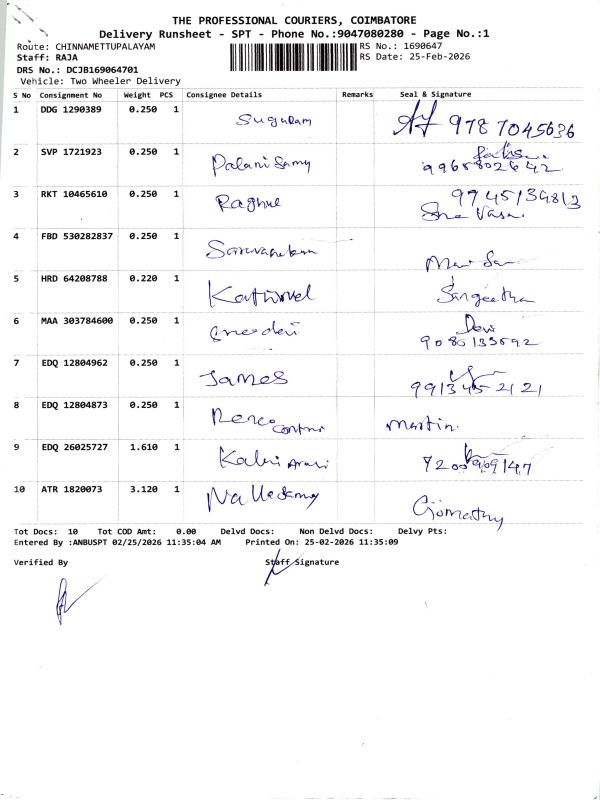 THE PROFESSIONAL COURIERS, COIMBATORE
Delivery Runsheet - SPT - Phone No.:9047080280 - Page No.:1
Route: CHINNAMETTUPALAYAM RS No.: 1690647
Staff: RAJA RS Date: 25-Feb-2026
DRS No.: DCJB169064701
Vehicle: Two Wheeler Delivery
S No Consignment No Weight PCS Consignee Details Remarks Seal & Signature
1 DDG 1290389 0.250 1 Sugunam 9787045636
2 SVP 1721923 0.250 1 Palani Samy
9965802642
3 RKT 10465610 0.250 1 Raghul 9745134813
4 FBD 530282837 0.250 1
5 HRD 64208788 0.220 1 Kathirvel Sangeetha
6 MAA 303784600 0.250 1 Devi
9080133592
7 EDQ 12804962 0.250 1 James
9913452121
8 EDQ 12804873 0.250 1 Martin.
9 EDQ 26025727 1.610 1
10 ATR 1820073 3.120 1 Nallasamy Gomathy
Tot Docs: 10 Tot COD Amt: 0.00 Delvd Docs: Non Delvd Docs: Delvy Pts:
Entered By :ANBUSPT 02/25/2026 11:35:04 AM Printed On: 25-02-2026 11:35:09
Verified By Staff Signature